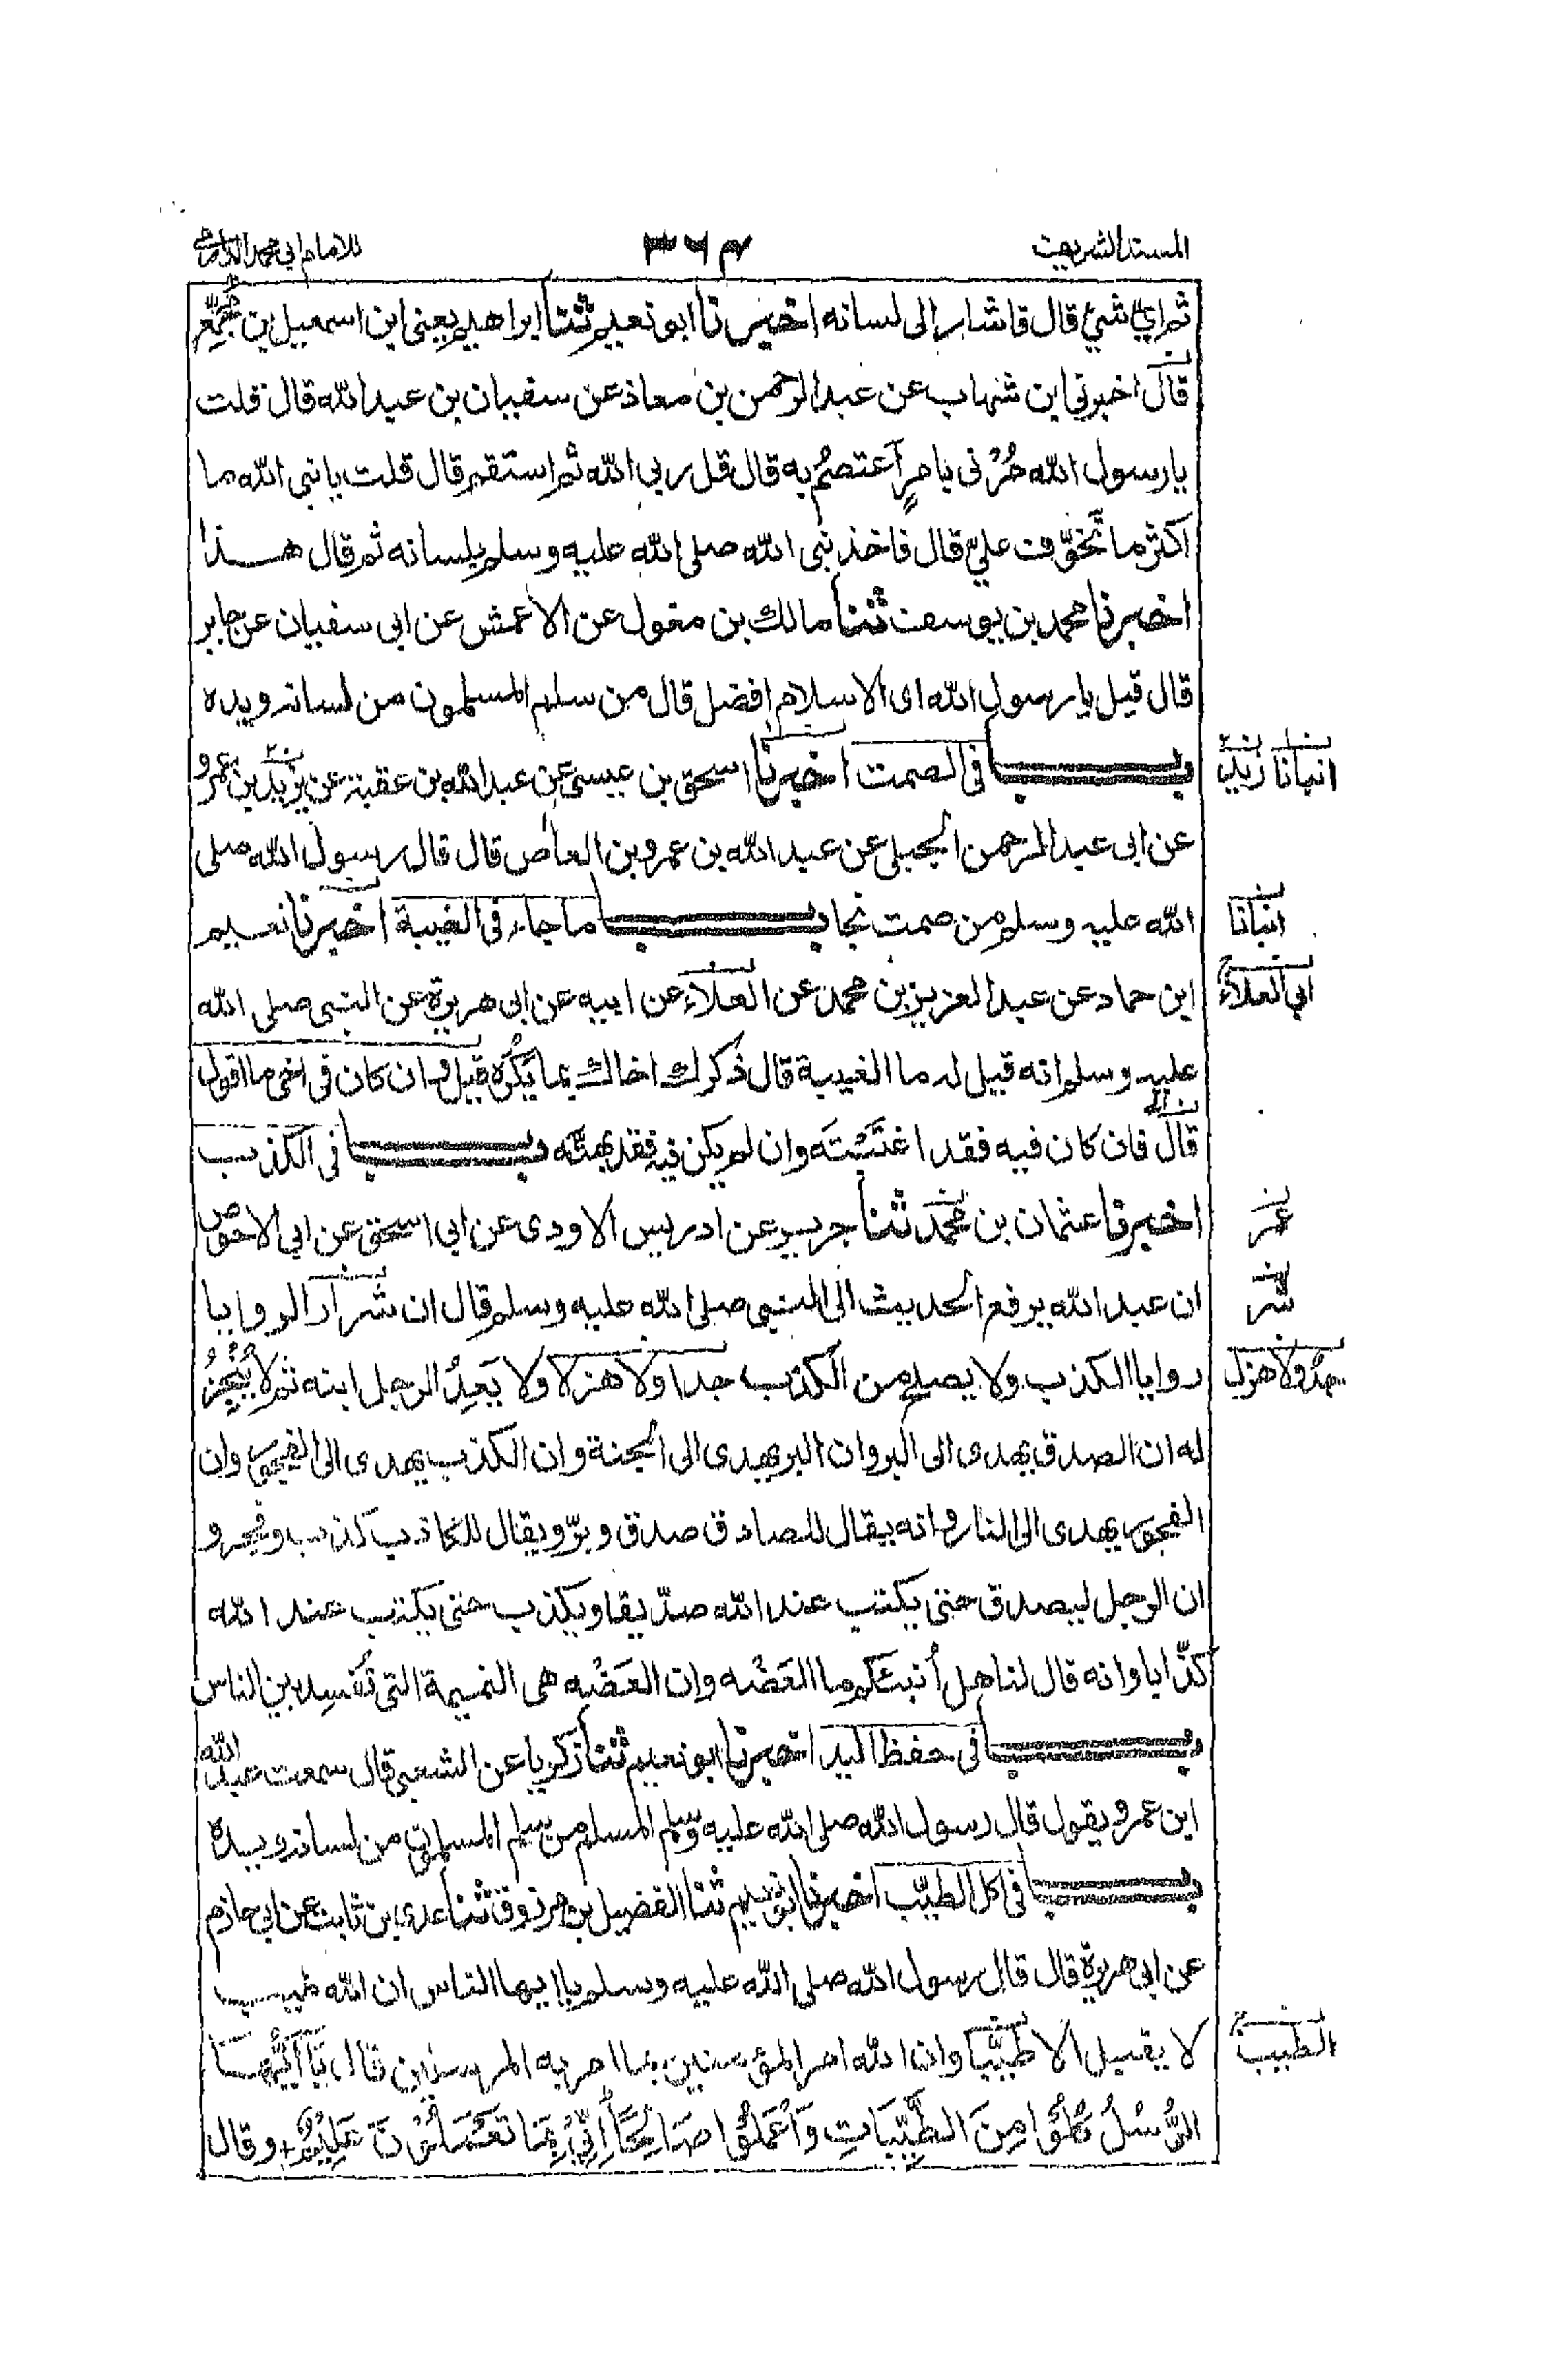 المسند الشريف ٣٦٤ للامام ابي محمد الدارمي
ثم اي شئ قال فاشار الى لسانه اخبرنا ابو نعيم ثنا ابراهيم يعنى ابن اسمعيل بن مُجَمِّع
قال اخبرني ابن شهاب عن عبد الرحمن بن معاذ عن سفيان بن عبد الله قال قلت
يا رسول الله مُرْني بامرٍ اَعتصمُ به قال قل ربي الله ثم استقم قال قلت يا نبي الله ما
اكثر ما تَخَوَّفت عليّ قال فاخذ نبي الله صلى الله عليه وسلم بلسانه ثم قال هذا
اخبرنا محمد بن يوسف ثنا مالك بن مغول عن الاعمش عن ابي سفيان عن جابر
قال قيل يا رسول الله اى الاسلام افضل قال من سلم المسلمون من لسانه ويده
باب في الصمت اخبرنا اسحق بن عيسى عن عبد الله بن عقبة عن يزيد بن عمرو
انبانا زيد
عن ابى عبد الرحمن الحبلى عن عبد الله بن عمرو بن العاص قال قال رسول الله صلى
الله عليه وسلم من صمت نجا باب ما جاء في الغيبة اخبرنا نعيم
انبانا
ابن حماد عن عبد العزيز بن محمد عن العلاء عن ابيه عن ابى هريرة عن النبى صلى الله
ابي العلاء
عليه وسلم انه قيل له ما الغيبة قال ذكرك اخاك بما يَكْرَه قيل وان كان في اخي ما اقول
قال فان كان فيه فقد اغتَبْتَه وان لم يكن فيه فقد بهتّه باب في الكذب
اخبرنا عثمان بن محمد ثنا جرير عن ادريس الاودى عن ابي اسحق عن ابي الاحوص
عمر
ان عبد الله يرفع الحديث الى النبى صلى الله عليه وسلم قال ان شرار الروايا
شر
روايا الكذب ولا يصلح من الكذب جدا ولا هزلا ولا يَعِدُ الرجل ابنه ثم لا يُنْجِزُ
جدٌ ولا هزل
له ان الصدق يهدى الى البر وان البر يهدى الى الجنة وان الكذب يهدى الى الفجور وان
الفجور يهدى الى النار وانه يقال للصادق صدق وبرّ ويقال للكاذب كذب وفجر و
ان الرجل ليصدق حتى يكتب عند الله صدّيقا ويكذب حتى يكتب عند الله
كذّابا وانه قال لنا هل اُنبئكم ما العَضْه وان العَضْه هى النميمة التى تُفسِد بين الناس
باب في حفظ اليد اخبرنا ابو نعيم ثنا زكريا عن الشعبى قال سمعت عبد الله
ابن عمرو يقول قال رسول الله صلى الله عليه وسلم المسلم من سلم المسلمون من لسانه ويده
باب في اكل الطيّب اخبرنا ابو نعيم ثنا الفضيل بن مرزوق ثنا عدى بن ثابت عن ابي حازم
عن ابى هريرة قال قال رسول الله صلى الله عليه وسلم يا ايها الناس ان الله طيب
لا يقبل الا طَيِّبًا وان الله امر المؤمنين بما امر به المرسلين قال يَآ اَيُّهَا
الطيب
الرُّسُلُ كُلُوْا مِنَ الطَّيِّبَاتِ وَاعْمَلُوْا صَالِحًا اِنِّيْ بِمَا تَعْمَلُوْنَ عَلِيْمٌ وقال